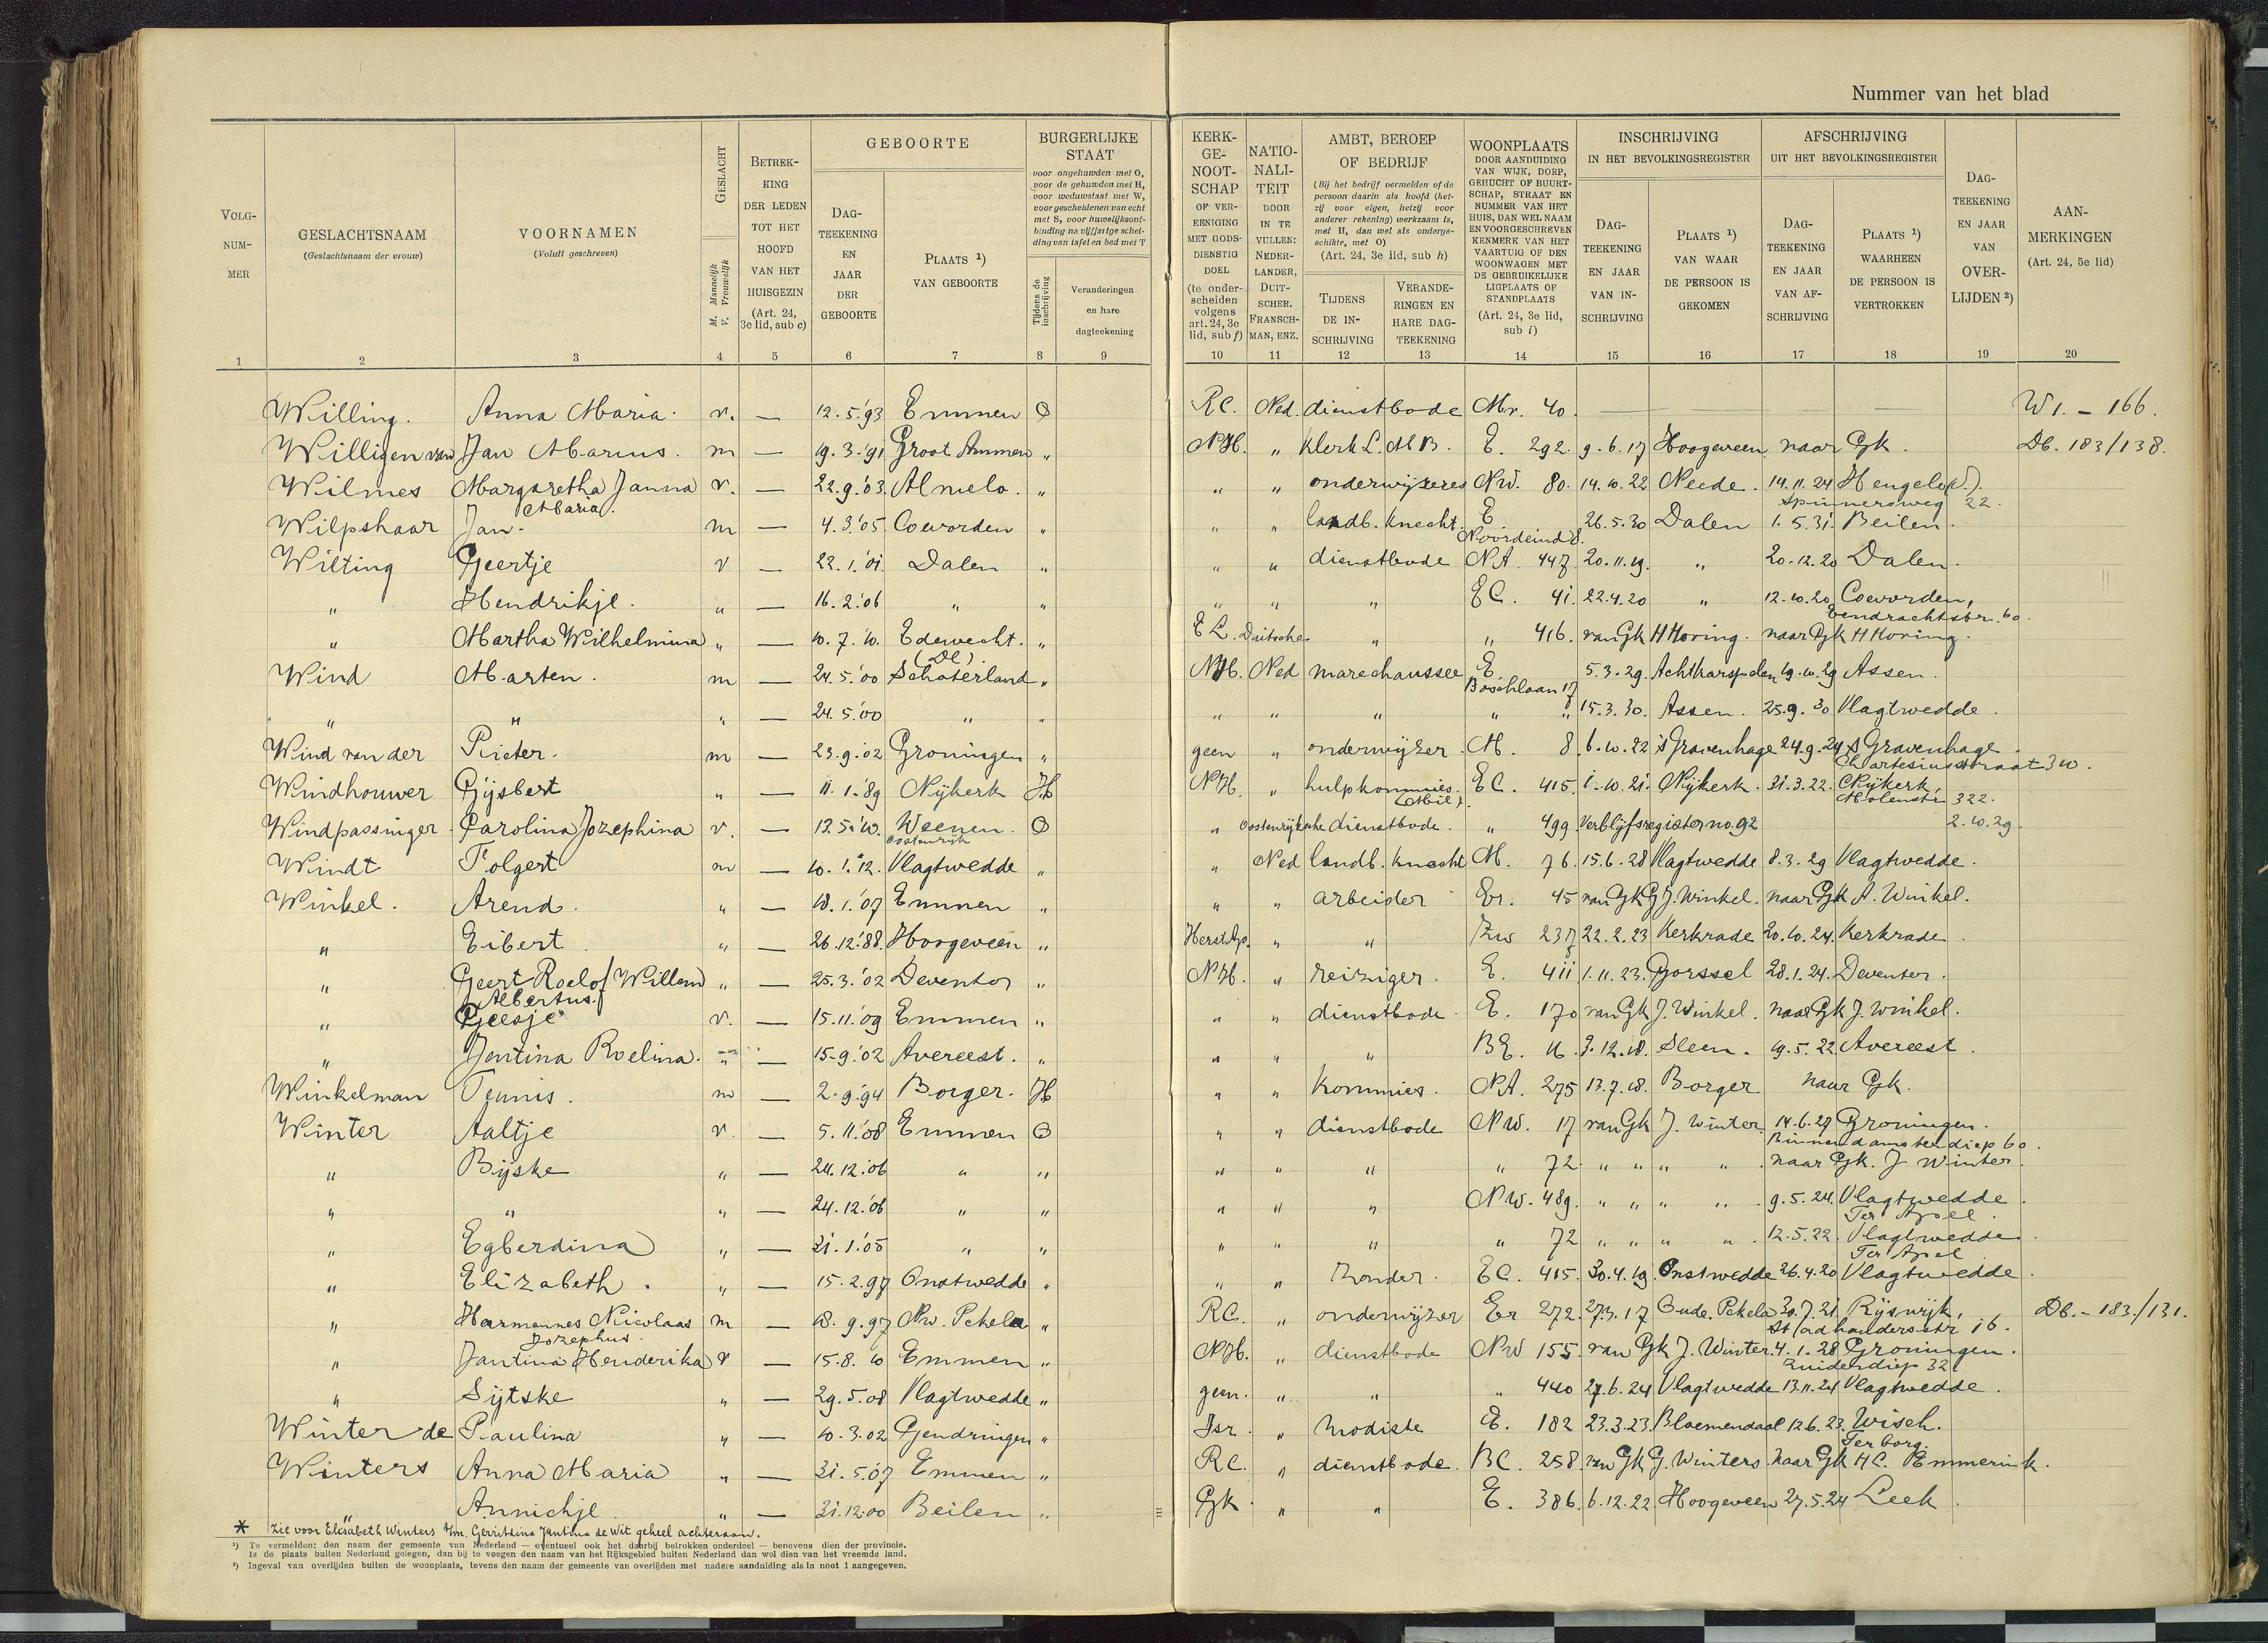 Nummer van het blad
VOLG-NUM-MER 1
GESLACHTSNAAM (Geslachtsnaam der vrouw) 2
VOORNAMEN (Voluit geschreven) 3
GESLACHT M. Mannelijk V. Vrouwelijk 4
BETREK-KING DER LEDEN TOT HET HOOFD VAN HET HUISGEZIN (Art. 24, 3e lid, sub c) 5
GEBOORTE
DAG-TEEKENING EN JAAR DER GEBOORTE 6
PLAATS ¹) VAN GEBOORTE 7
BURGERLIJKE STAAT voor ongehuwden met O, voor de gehuwden met H, voor weduwstaat met W, voor gescheidenen van echt met S, voor huwelijksont-binding na vijfjarige schei-ding van tafel en bed met T
Tijdens de inschrijving 8
Veranderingen en hare dagteekening 9
KERK-GE-NOOT-SCHAP OF VER-EENIGING MET GODS-DIENSTIG DOEL (te onder-scheiden volgens art. 24, 3e lid, sub f) 10
NATIO-NALI-TEIT DOOR IN TE VULLEN: NEDER-LANDER, DUIT-SCHER, FRANSCH-MAN, ENZ. 11
AMBT, BEROEP OF BEDRIJF (Bij het bedrijf vermelden of de persoon daarin als hoofd (het-zij voor eigen, hetzij voor anderer rekening) werkzaam is, met H, dan wel als onderge-schikte, met O) (Art. 24, 3e lid, sub h)
TIJDENS DE IN-SCHRIJVING 12
VERANDE-RINGEN EN HARE DAG-TEEKENING 13
WOONPLAATS DOOR AANDUIDING VAN WIJK, DORP, GEHUCHT OF BUURT-SCHAP, STRAAT EN NUMMER VAN HET HUIS, DAN WEL NAAM EN VOORGESCHREVEN KENMERK VAN HET VAARTUIG OF DEN WOONWAGEN MET DE GEBRUIKELIJKE LIGPLAATS OF STANDPLAATS (Art. 24, 3e lid, sub i) 14
INSCHRIJVING IN HET BEVOLKINGSREGISTER
DAG-TEEKENING EN JAAR VAN IN-SCHRIJVING 15
PLAATS ¹) VAN WAAR DE PERSOON IS GEKOMEN 16
AFSCHRIJVING UIT HET BEVOLKINGSREGISTER
DAG-TEEKENING EN JAAR VAN AF-SCHRIJVING 17
PLAATS ¹) WAARHEEN DE PERSOON IS VERTROKKEN 18
DAG-TEEKENING EN JAAR VAN OVER-LIJDEN ²) 19
AAN-MERKINGEN (Art. 24, 5e lid) 20
Willing. Anna Maria. v. — 12.5.'93 Emmen O RC. Ned. dienstbode Mr. 40. — — — — W1. - 166.
Willigen van Jan Marius. m — 19.3.'91 Groot Ammers " NH. " klerk L.M B. E. 292. 9.6.17 Hoogeveen naar Gk. Db. 183/138.
Wilmes Margaretha Janna Maria. v. — 22.9.'03. Almelo. " " " onderwijzeres NW. 80. 14.10.22 Neede. 14.11.24 Hengelo (O.) Spinnersweg 22.
Wilpshaar Jan. m — 4.3.'05 Coevorden " " " landb. knecht. E. Noordeind 8. 26.5.30 Dalen 1.5.31. Beilen.
Wilting Geertje v — 22.1.'01. Dalen " " " dienstbode NA. 447 20.11.19. " 20.12.20 Dalen.
" Hendrikje. " — 16.2.'06 " " " " " EC. 41. 22.4.20 " 12.10.20 Coevorden, Eendrachtstr. 60.
" Martha Wilhelmina " — 10.7.'10. Edewecht. (Dl) " EL. Duitsche " " 416. van Gk H Horing. naar Gk H Horing.
Wind Marten. m — 24.5.'00 Schoterland " NH. Ned marechaussee E. Boschlaan 17 5.3.29. Achtkarspelen 19.10.29 Assen.
" " " — 24.5.'00 " " " " " " " 15.3.30. Assen. 25.9.30 Vlagtwedde.
Wind van der Pieter. m — 23.9.'02 Groningen " geen " onderwijzer. M. 8. 6.10.22 's Gravenhage 24.9.24 's Gravenhage. Chartesiusstraat 30.
Windhouwer Gijsbert " — 11.1.'89 Nijkerk H NH. " hulpkommies. (Mil). EC. 415. 1.10.21. Nijkerk. 31.3.22. Nijkerk, Molenstr. 322.
Windpassinger Carolina Jozephina v. — 13.5.'10. Weenen. Oostenrijk O " Oostenrijksche dienstbode. " 499. Verblijfsregister no. 92 2.10.29.
Windt Folgert m — 10.1.'12. Vlagtwedde " " Ned landb. knecht M. 76. 15.6.28 Vlagtwedde 8.3.29 Vlagtwedde.
Winkel. Arend. " — 18.1.'07 Emmen " " " arbeider Er. 45 van Gk G J. Winkel. naar Gk A. Winkel.
" Eibert. " — 26.12.'88. Hoogeveen " Herst. Ap. " " Zw 237 22.2.23 Kerkrade 20.10.24. Kerkrade.
" Geert Roelof Willem Albertus. " — 25.3.'02 Deventer " NH. " reiziger. E. 411 1.11.23. Gorssel 28.1.24. Deventer.
" Geesje v. — 15.11.'09 Emmen " " " dienstbode. E. 170 van Gk J. Winkel. naar Gk J. Winkel.
" Jentina Roelina. " — 15.9.'02 Avereest. " " " " BE. 16. 3.12.18. Sleen. 19.5.22 Avereest.
Winkelman Teunis. m — 2.9.'94 Borger. H " " kommies. NA. 275 13.7.18. Borger naar Gk.
Winter Aaltje v. — 5.11.'08 Emmen O " " dienstbode NW. 17 van Gk J. Winter. 14.6.27 Groningen. Binnendamsterdiep 60.
" Bijske " — 24.12.'06 " " " " " " 72 " " " " naar Gk. J Winter.
" " " — 24.12.'06 " " " " " NW. 489. " " " " 9.5.24. Vlagtwedde. Ter Apel.
" Egberdina " — 31.1.'05 " " " " " " 72 " " " " 12.5.22. Vlagtwedde. Ter Apel
" Elizabeth. " — 15.2.97 Onstwedde " " " zonder. EC. 415. 30.4.19. Onstwedde 26.4.20 Vlagtwedde.
" Harmannes Nicolaas Jozephus. m — 18.9.97 Nw. Pekela " RC. " onderwijzer Er 272. 27.3.17 Oude. Pekela 30.7.21. Rijswijk, Stadhoudersstr 16. Db. - 183/131.
" Jantina Henderika v — 15.8.10 Emmen " NH. " dienstbode NW 155. van Gk J. Winter. 4.1.28 Groningen. Zuiderdiep 32
" Sijtske " — 29.5.08 Vlagtwedde " geen. " " " 440 27.6.24 Vlagtwedde 13.11.24 Vlagtwedde.
Winter de Paulina " — 10.3.02 Gendringen " Isr. " modiste E. 182 23.3.23 Bloemendaal 12.6.23. Wisch. Terborg.
Winters Anna Maria " — 31.5.07 Emmen " RC. " dienstbode. BC. 258. van Gk G. Winters. naar Gk H C. Emmerink.
" Annichje " — 21.12.00 Beilen " Gk. " " E. 386. 6.12.22. Hoogeveen 27.5.24 Leek.
* Zie voor Elisabeth Winters t/m. Gerritdina Jantina de Wit geheel achteraan.
¹) Te vermelden: den naam der gemeente van Nederland — eventueel ook het daarbij betrokken onderdeel — benevens dien der provincie.
Is de plaats buiten Nederland gelegen, dan bij te voegen den naam van het Rijksgebied buiten Nederland dan wol dien van het vreemde land.
²) Ingeval van overlijden buiten de woonplaats, tevens den naam der gemeente van overlijden met nadere aanduiding als in noot 1 aangegeven.